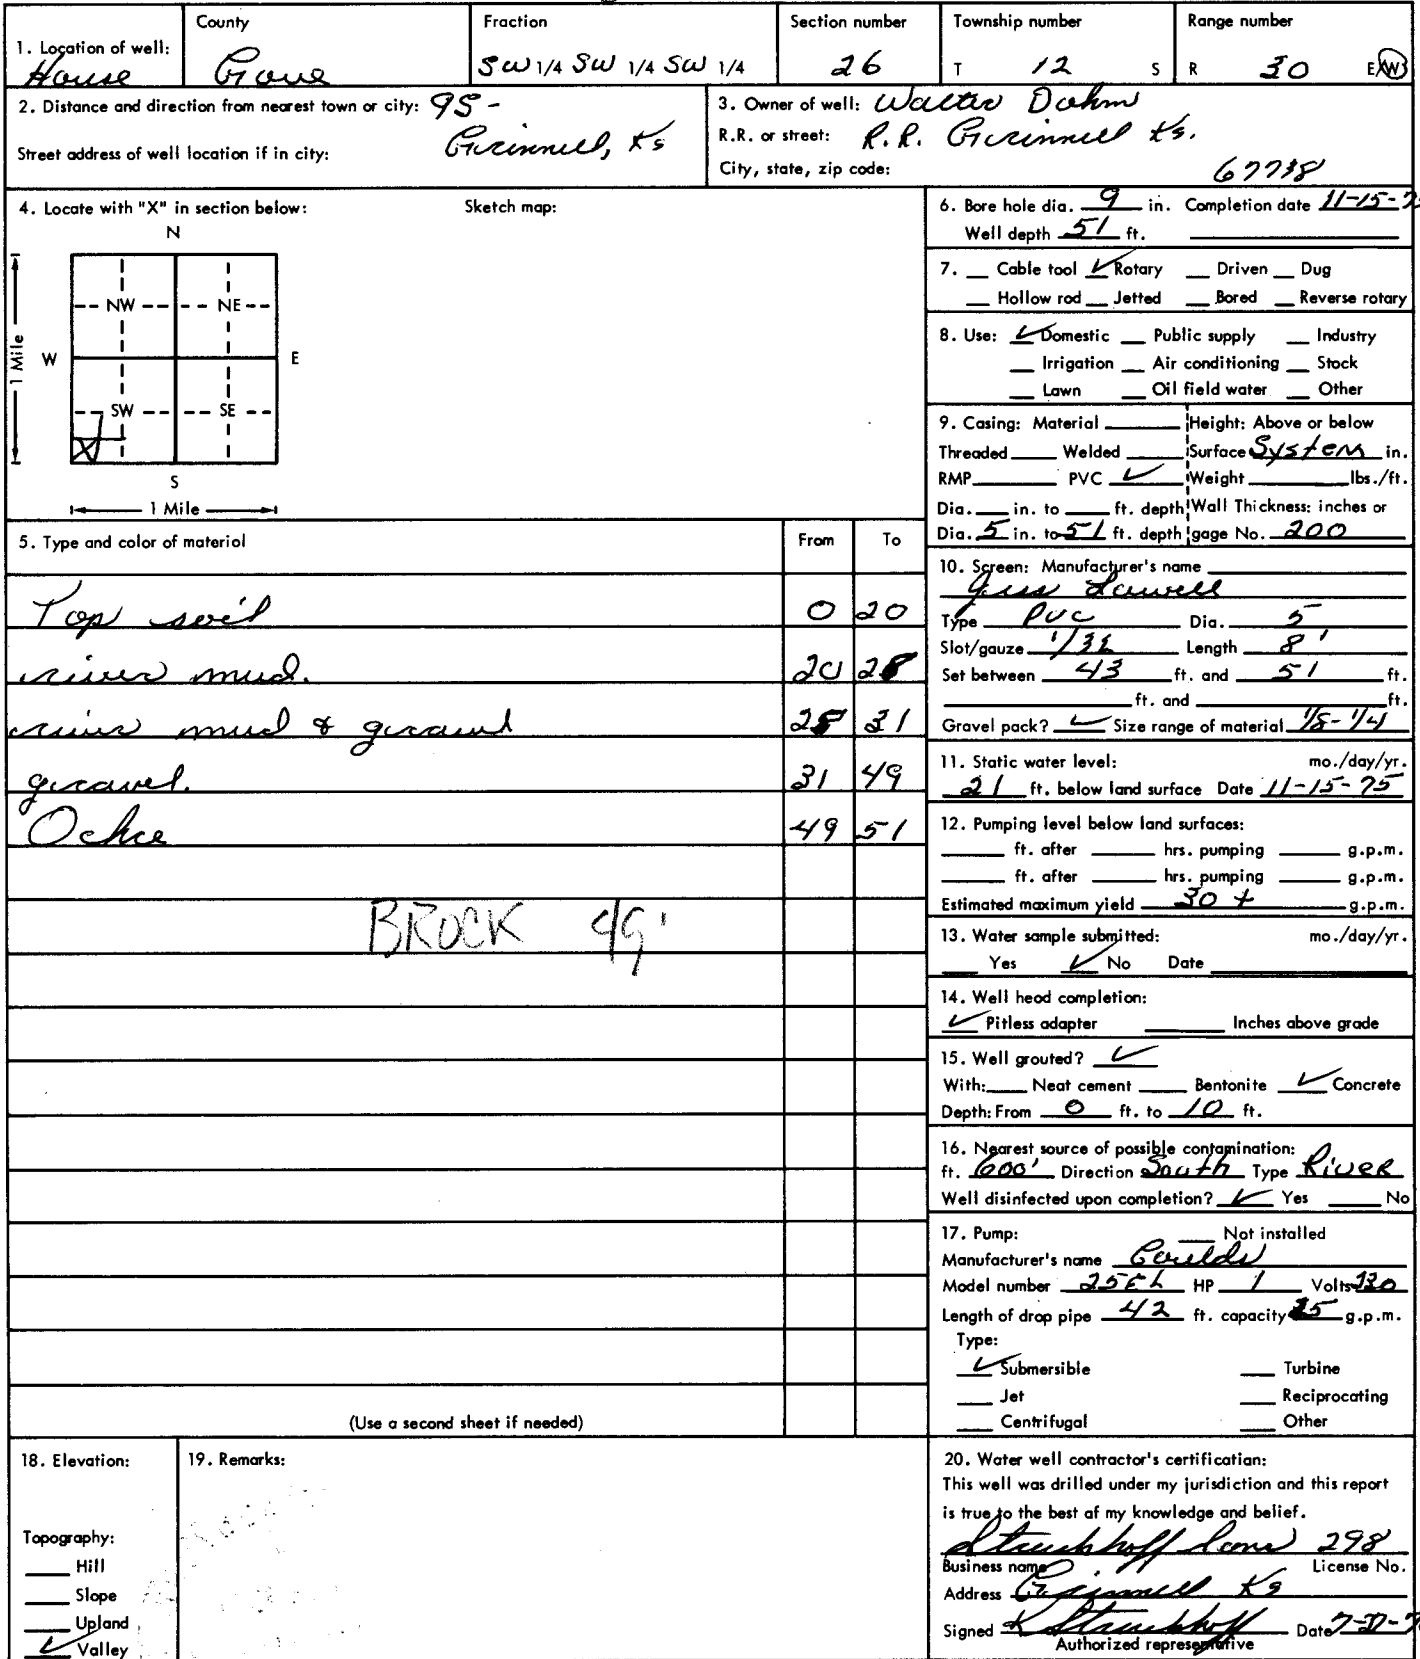 County Fraction Section number Township number Range number
1. Location of well:
House Gove SW 1/4 SW 1/4 SW 1/4 26 T 12 S R 30 E/W
2. Distance and direction from nearest town or city: 9S -
Grinnell, Ks
Street address of well location if in city:
3. Owner of well: Walter Dohm
R.R. or street: R.R. Grinnell Ks.
City, state, zip code: 67738
4. Locate with "X" in section below: Sketch map:
N
NW NE
1 Mile W E
SW SE
X
S
1 Mile
5. Type and color of material From To
Top soil 0 20
river mud. 20 28
river mud & gravel 28 31
gravel. 31 49
Ochre 49 51
BROCK 49'
(Use a second sheet if needed)
6. Bore hole dia. 9 in. Completion date 11-15-75
Well depth 51 ft.
7. Cable tool ✓ Rotary Driven Dug
Hollow rod Jetted Bored Reverse rotary
8. Use: ✓ Domestic Public supply Industry
Irrigation Air conditioning Stock
Lawn Oil field water Other
9. Casing: Material Height: Above or below
Threaded Welded Surface System in.
RMP PVC ✓ Weight lbs./ft.
Dia. in. to ft. depth Wall Thickness: inches or
Dia. 5 in. to 51 ft. depth gage No. 200
10. Screen: Manufacturer's name
Jess Lowell
Type PVC Dia. 5
Slot/gauze 1/32 Length 8'
Set between 43 ft. and 51 ft.
ft. and ft.
Gravel pack? ✓ Size range of material 1/8-1/4
11. Static water level: mo./day/yr.
21 ft. below land surface Date 11-15-75
12. Pumping level below land surfaces:
ft. after hrs. pumping g.p.m.
ft. after hrs. pumping g.p.m.
Estimated maximum yield 30 + g.p.m.
13. Water sample submitted: mo./day/yr.
Yes ✓ No Date
14. Well head completion:
✓ Pitless adapter Inches above grade
15. Well grouted? ✓
With: Neat cement Bentonite ✓ Concrete
Depth: From 0 ft. to 10 ft.
16. Nearest source of possible contamination:
ft. 600' Direction South Type River
Well disinfected upon completion? ✓ Yes No
17. Pump: Not installed
Manufacturer's name Goulds
Model number 25EL HP 1 Volts
Length of drop pipe 42 ft. capacity 25 g.p.m.
Type:
✓ Submersible Turbine
Jet Reciprocating
Centrifugal Other
18. Elevation:
Topography:
Hill
Slope
Upland
✓ Valley
19. Remarks:
20. Water well contractor's certification:
This well was drilled under my jurisdiction and this report
is true to the best of my knowledge and belief.
Struckhoff Sons 298
Business name License No.
Address Grinnell Ks
Signed K Struckhoff Date
Authorized representative